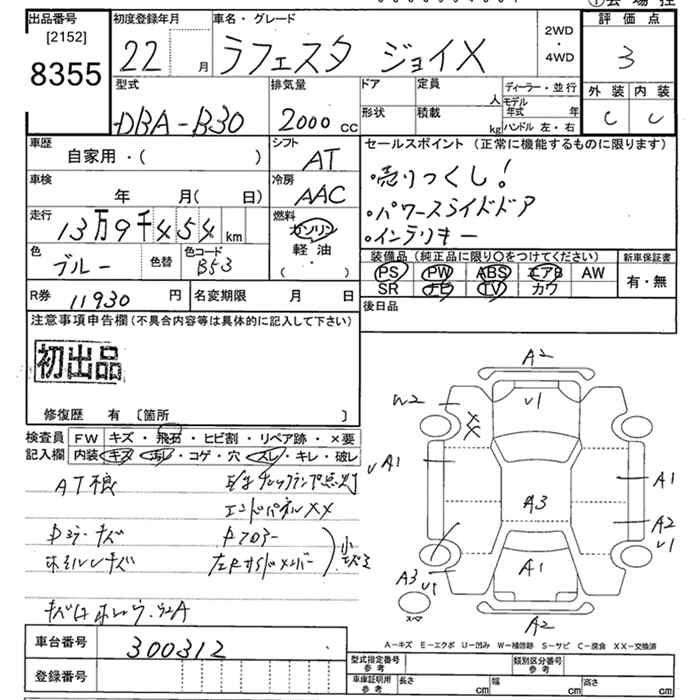 出品番号
[2152]
8355
初度登録年月
22 月
車名・グレード
ラフェスタ ジョイX
2WD
・
4WD
評価点
3
外装 内装
C C
型式
DBA-B30
排気量
2000 cc
ドア
形状
定員
人
積載
kg
ディーラー・並行
モデル
年式 年
ハンドル 左・右
車歴
自家用・( )
シフト
AT
車検
年 月( 日)
冷房
AAC
走行
13万9千454 km
燃料
ガソリン
軽油
( ・ )
色
ブルー
色替
色コード
B53
R券 11930 円
名変期限 月 日
セールスポイント (正常に機能するものに限ります)
・売りつくし!
・パワースライドドア
・インテリキー
装備品 (純正品に限り○をつけてください)
PS PW ABS エアB AW
SR ナビ TV カワ
新車保証書
有・無
後日品
注意事項申告欄(不具合内容等は具体的に記入して下さい)
初出品
修復歴 有 〔箇所 〕
検査員
記入欄
FW キズ・飛石・ヒビ割・リペア跡・×要
内装 キズ・汚レ・コゲ・穴・スレ・キレ・破レ
AT
エンドパネルXX
キズ
ホイルキズ
フロアー
メンバー
小
A2
W2
U1
XX
A1
A3
A1
A2
U1
A3
U1
A1
A2
スペア
A-キズ E-エクボ U-凹み W-補修跡 S-サビ C-腐食 XX-交換済
車台番号
300312
登録番号
型式指定番号
参考
類別区分番号
参考
車庫証明用
参考
長さ cm
幅 cm
高さ cm